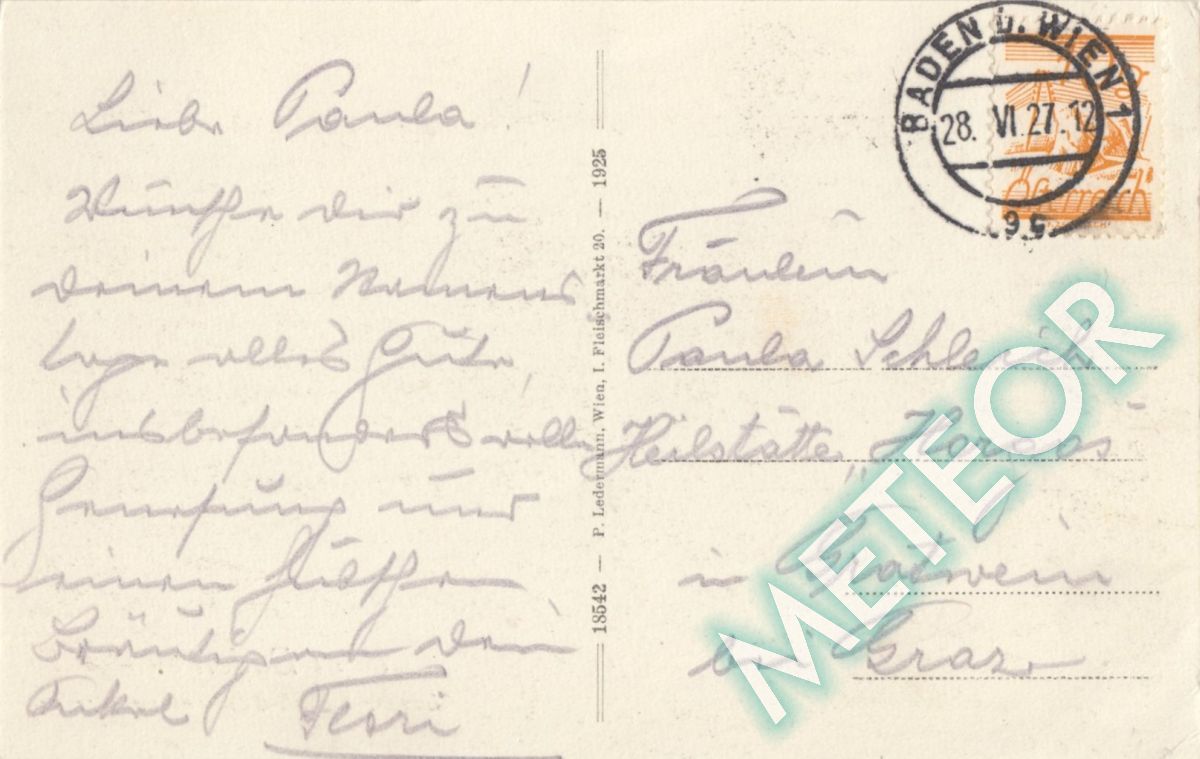 Liebe Paula!
Wünsche dir zu
deinem Namens
tage alles Gute,
insbesonders volle
Genesung und
einen hübschen
Bräutigam dein
Onkel Ferri
18542 — P. Ledermann, Wien, I. Fleischmarkt 20. — 1925
BADEN b. WIEN 1
28. VI. 27. 12
Österreich
Fräulein
Paula
Heilstätte „Hörgas"
in Gratwein
bei Graz
METEOR